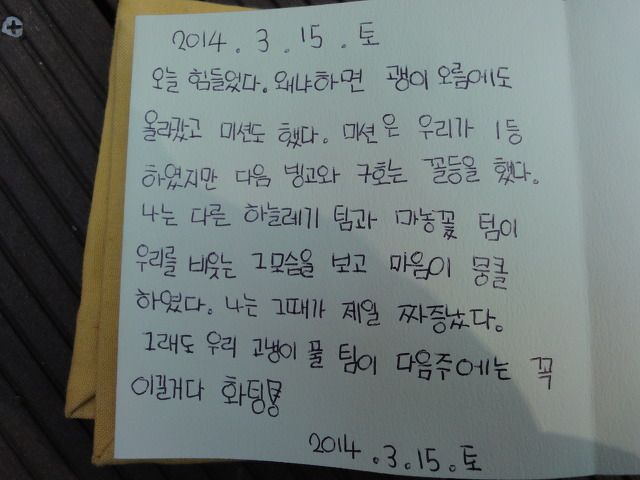 2014.3.15.토
오늘 힘들었다. 왜냐하면 괭이오름에도
올라갔고 미션도 했다. 미션은 우리가 1등
하였지만 다음 빙고와 구호는 꼴등을 했다.
나는 다른 하늘레기 팀과 마농꽃 팀이
우리를 비웃는 그모습을 보고 마음이 뭉클
하였다. 나는 그때가 제일 짜증났다.
그래도 우리 고냉이 풀 팀이 다음주에는 꼭
이길거다 화팅!
2014.3.15.토